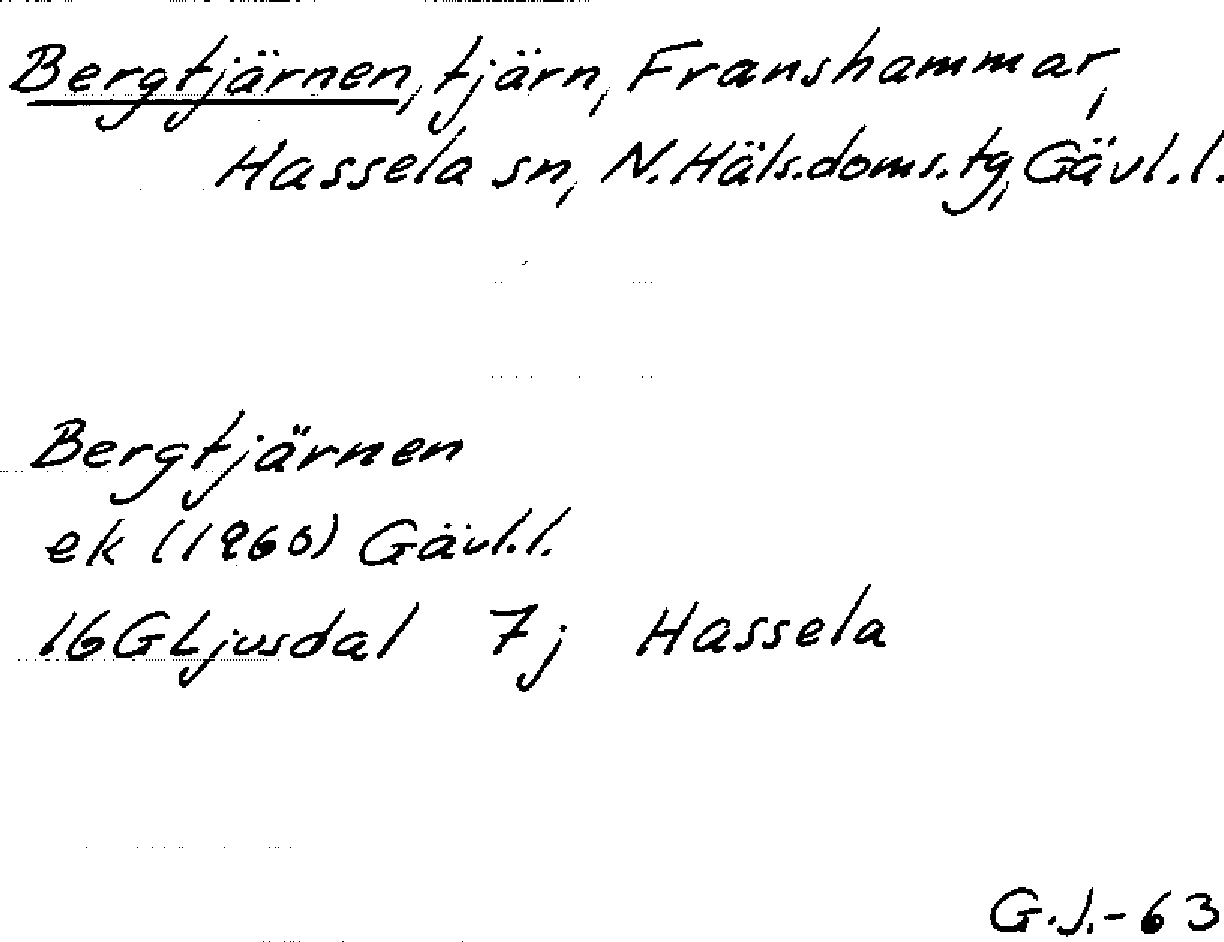 Bergtjärnen, tjärn, Franshammar,
Hassela sn, N.Häls.doms.tg, Gävl.l.
Bergtjärnen
ek (1960) Gävl.l.
16G Ljusdal 7j Hassela
G.J.-63